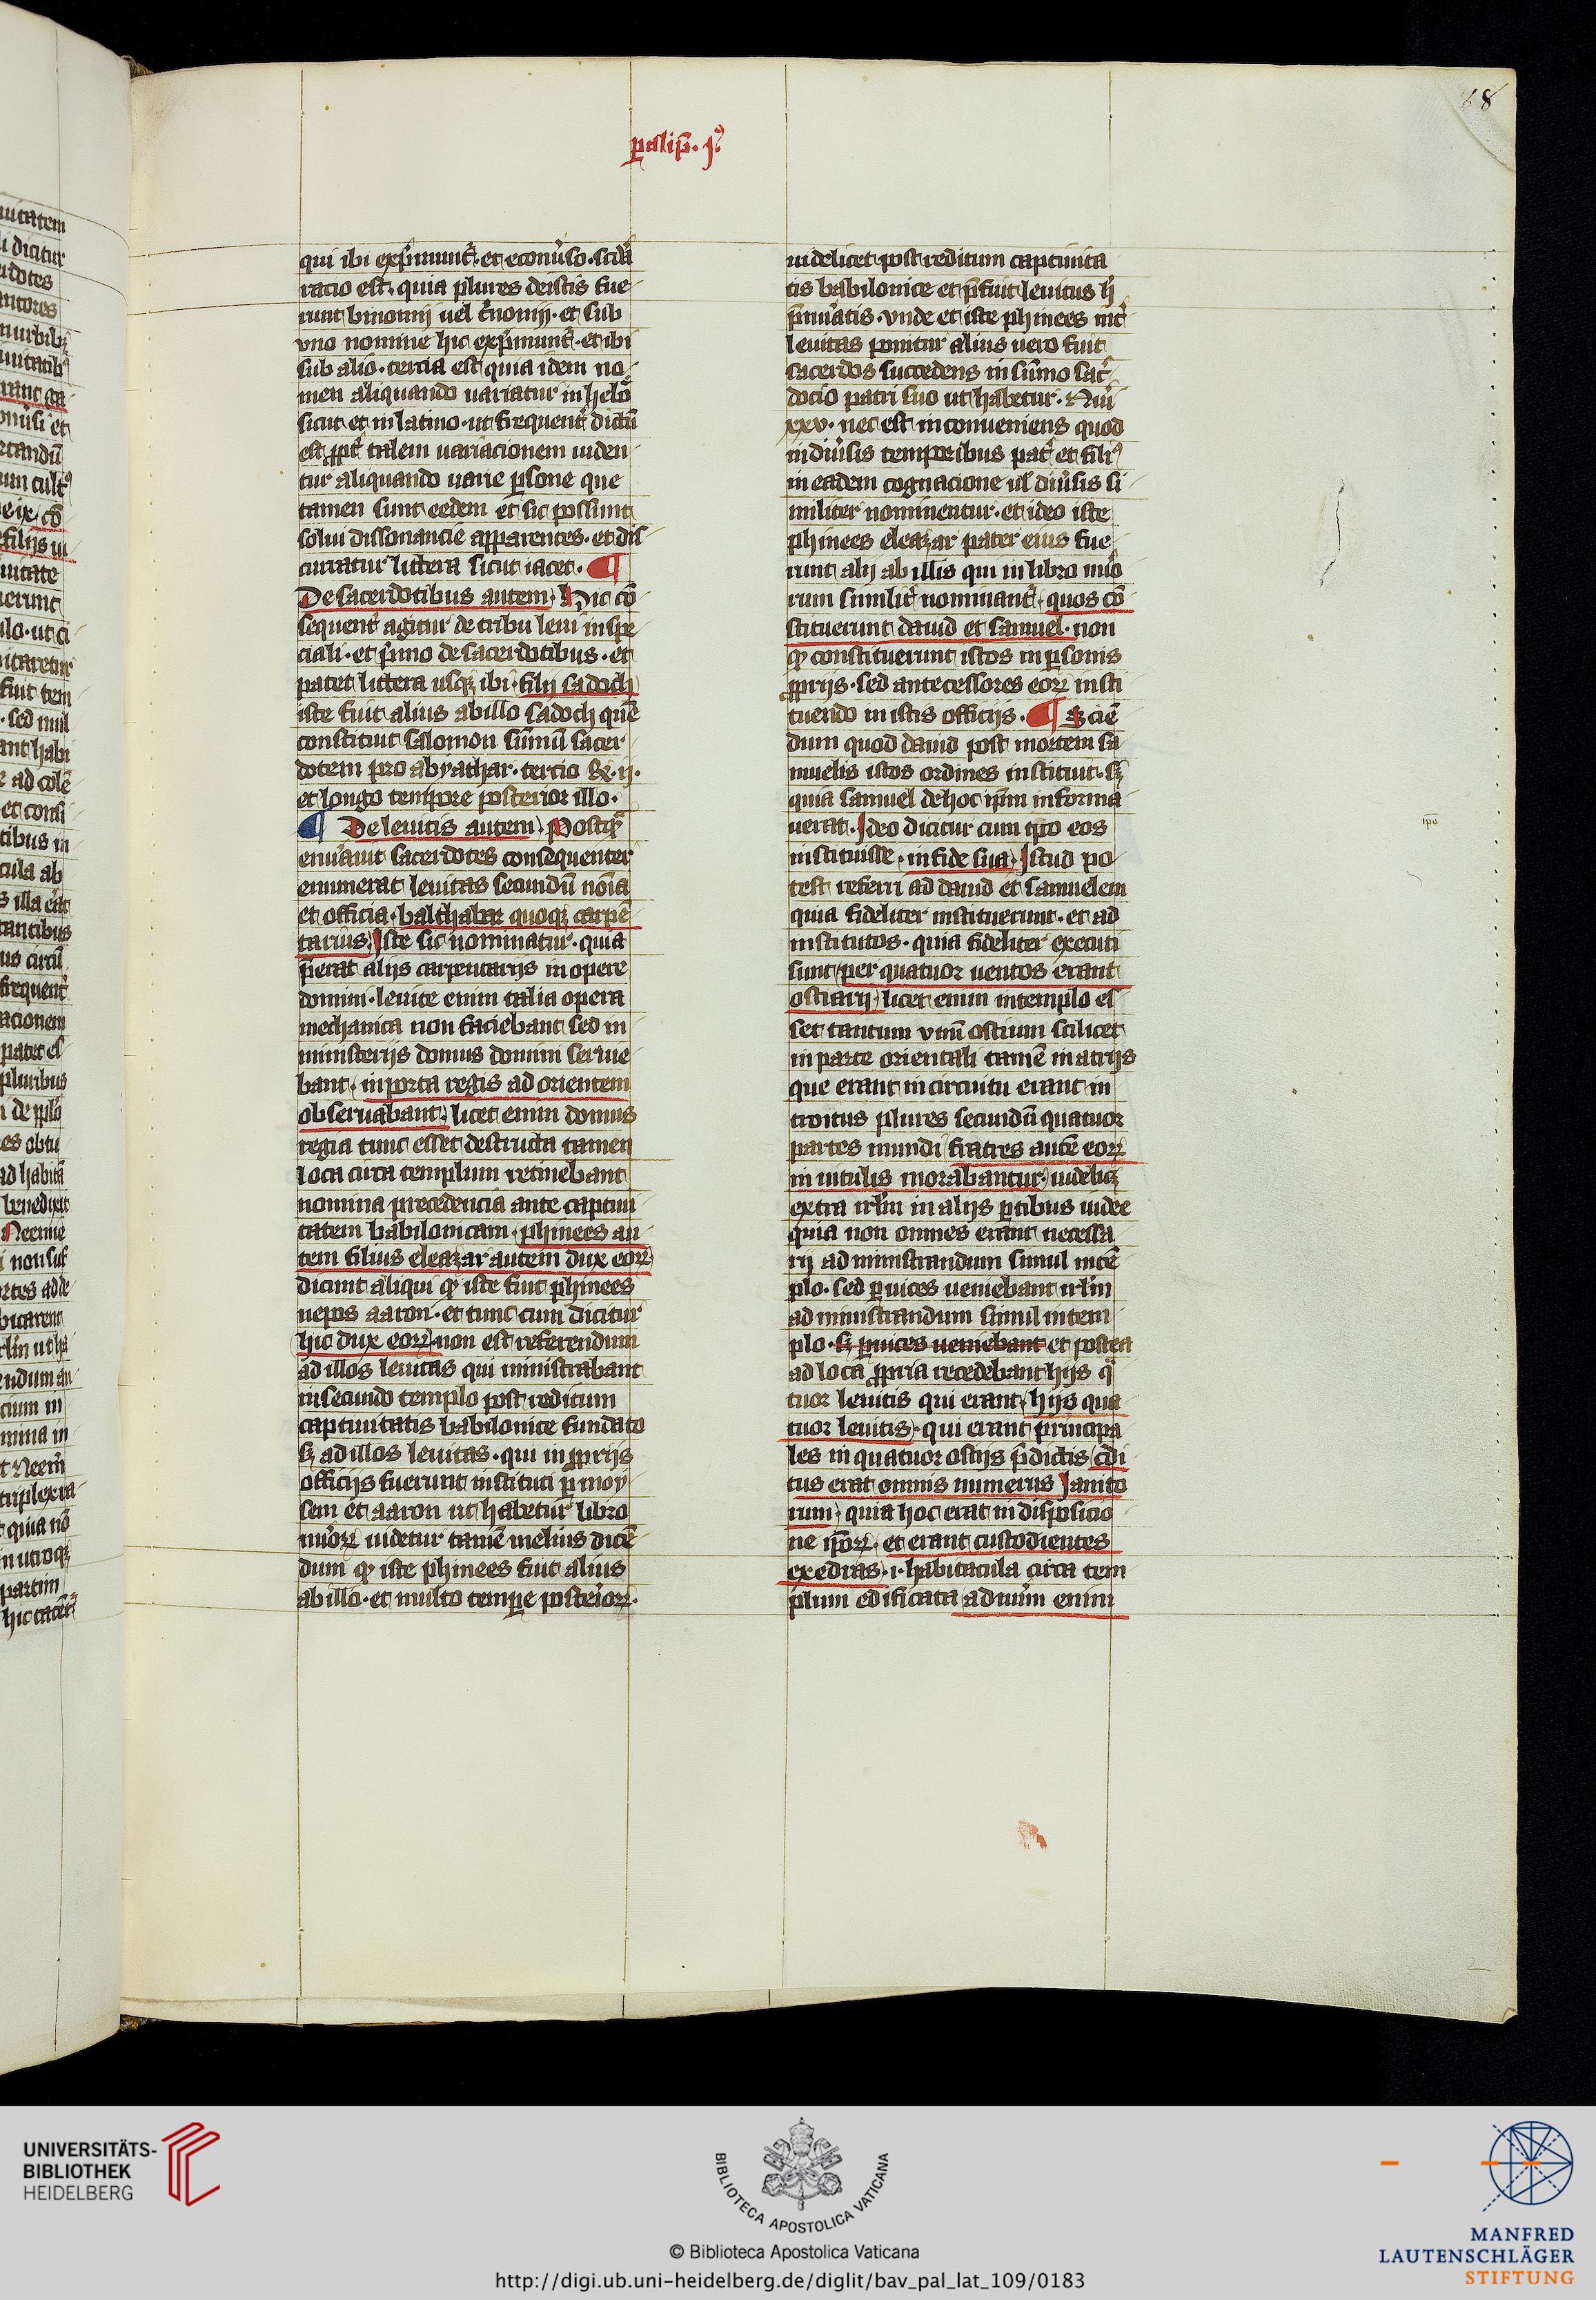 68
palip̄. j.⁹
qui ibi exp̄munt᷑. et econu̓so. sc̄da
racio est. quia plures de istis fue
runt binomij uel t̓nomij. et sub
vno nomine hic exp̄munt᷑. et ibi
sub alio. tercia est quia idem no
men aliquando uariatur in hebꝰ
sicut et in latino. ut frequent̓ dictū
est ꝓpt̓ talem uariacionem uiden
tur aliquando uarie ꝑsone que
tamen sunt eedem et sic possunt
solui dissonancie apparentes. et dis
curratur littera sicut iacet. ¶
De sacerdotibus autem. Hic cō
sequent̓ agitur de tribu leui in spe
ciali. et p̓mo de sacerdotibus. et
patet littera usqꝫ ibi. filij sadoch
iste fuit alius ab illo sadoch quē
constituit salomon sūmū sacer
dotem pro abyathar. tercio ℞. ij.
et longo tempore posterior illo.
¶ De leuitis autem. Postqᷓ
enūauit sacerdotes consequenter
enumerat leuitas secundū noīa
et officia. balthabar quoqꝫ carpē
tarius. Iste sic nominatur. quia
p̄erat alijs carpentarijs in opere
domini. leuite enim talia opera
mechanica non faciebant sed in
ministerijs domus domini seruie
bant. in porta regis ad orientem
obseruabant. licet enim domus
regia tunc esset destructa tamen
loca circa templum retinebant
nomina precedencia ante captiui
tatem babilonicam. phinees au
tem filius eleazar autem dux eoꝝ
dicunt aliqui ꝙ iste fuit phinees
nepos aaron. et tunc cum dicitur
hic dux eoꝝ non est referendum
ad illos leuitas qui ministrabant
in secundo templo post reditum
captiuitatis babilonice fundato
sꝫ ad illos leuitas. qui in ꝓprijs
officijs fuerunt instituti ꝑ moy
sem et aaron ut habetur libro
nu̓oꝝ uidetur tamē melius dicē
dum ꝙ iste phinees fuit alius
ab illo. et multo tempe posterioꝝ.
uidelicet post reditum captiuita
tis babilonice et p̄fuit leuitis h̓
p̄nūatis. vnde et iste phinees int̓
leuitas ponitur alius uero fuit
sacerdos succedens in sūmo sac̓
docio patri suo ut habetur. Nūi
xxv. nec est inconueniens quod
in diu̓sis temporibus pat̓ et filiꝰ
in eadem cognacione ul̓ diu̓sis si
militer nominentur. et ideo iste
phinees eleazar pater eius fue
runt alij ab illis qui in libro nu̓o
rum similit̓ nominant᷑. quos cō
stituerunt dauid et samuel. non
ꝙ constituerunt istos in ꝑsonis
ꝓprijs. sed antecessores eoꝝ insti
tuendo in istis officijs. ¶ Sciē
dum quod dauid post mortem sa
muelis istos ordines instituit. sꝫ
quia samuel de hoc ip̄m informa
uerat. Ideo dicitur cum ip̄o eos
instituisse. in fide sua. Istud po
test referri ad dauid et samuelem
quia fideliter instituerunt. et ad
institutos. quia fideliter executi
sunt per quatuor uentos erant
ostiarij. licet enim in templo es
set tantum vnū ostium scilicet
in parte orientali tamē in atrijs
que erant in circuitu erant in
troitus plures secundū quatuor
partes mundi fratres autē eoꝝ
in uitulis morabantur. uidelicꝫ
extra irl̄m in alijs ꝑtibus iudee
quia non omnes erant necessa
rij ad ministrandum simul in tē
plo. sed ꝑ uices ueniebant irl̄m
ad ministrandum simul in tem
plo. sꝫ ꝑ uices ueniebant et postea
ad loca ꝓpria recedebant hijs qᷓ
tuor leuitis qui erant. hijs qua
tuor leuitis. qui erant principa
les in quatuor ostijs p̄dictis c̄di
tus erat omnis numerus Ianito
rum. quia hoc erat in disposicio
ne ip̄oꝝ. et erant custodientes
exedras. i. habitacula circa tem
plum edificata ad nūm enim
ip̄o
UNIVERSITÄTS-
BIBLIOTHEK
HEIDELBERG
BIBLIOTECA APOSTOLICA VATICANA
© Biblioteca Apostolica Vaticana
http://digi.ub.uni-heidelberg.de/diglit/bav_pal_lat_109/0183
MANFRED
LAUTENSCHLÄGER
STIFTUNG